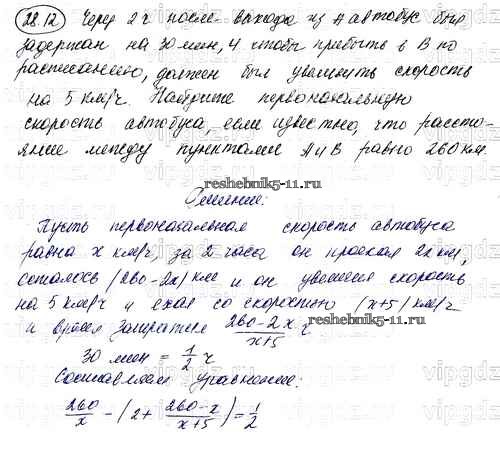 28.12 Через 2 ч после выхода из A автобус был
задержан на 30 мин, и чтобы прибыть в B по
расписанию, должен был увеличить скорость
на 5 км/ч. Найдите первоначальную
скорость автобуса, если известно, что расстоя-
яние между пунктами A и B равно 260 км.
reshebnik5-11.ru
Решение:
Пусть первоначальная скорость автобуса
равна x км/ч, за 2 часа он проехал 2x км,
осталось (260-2x) км и он увеличил скорость
на 5 км/ч и ехал со скоростью (x+5) км/ч
и время затратил (260-2x)/(x+5) ч
reshebnik5-11.ru
30 мин = 1/2 ч
Составляем уравнение:
260/x - (2 + (260-x)/(x+5)) = 1/2